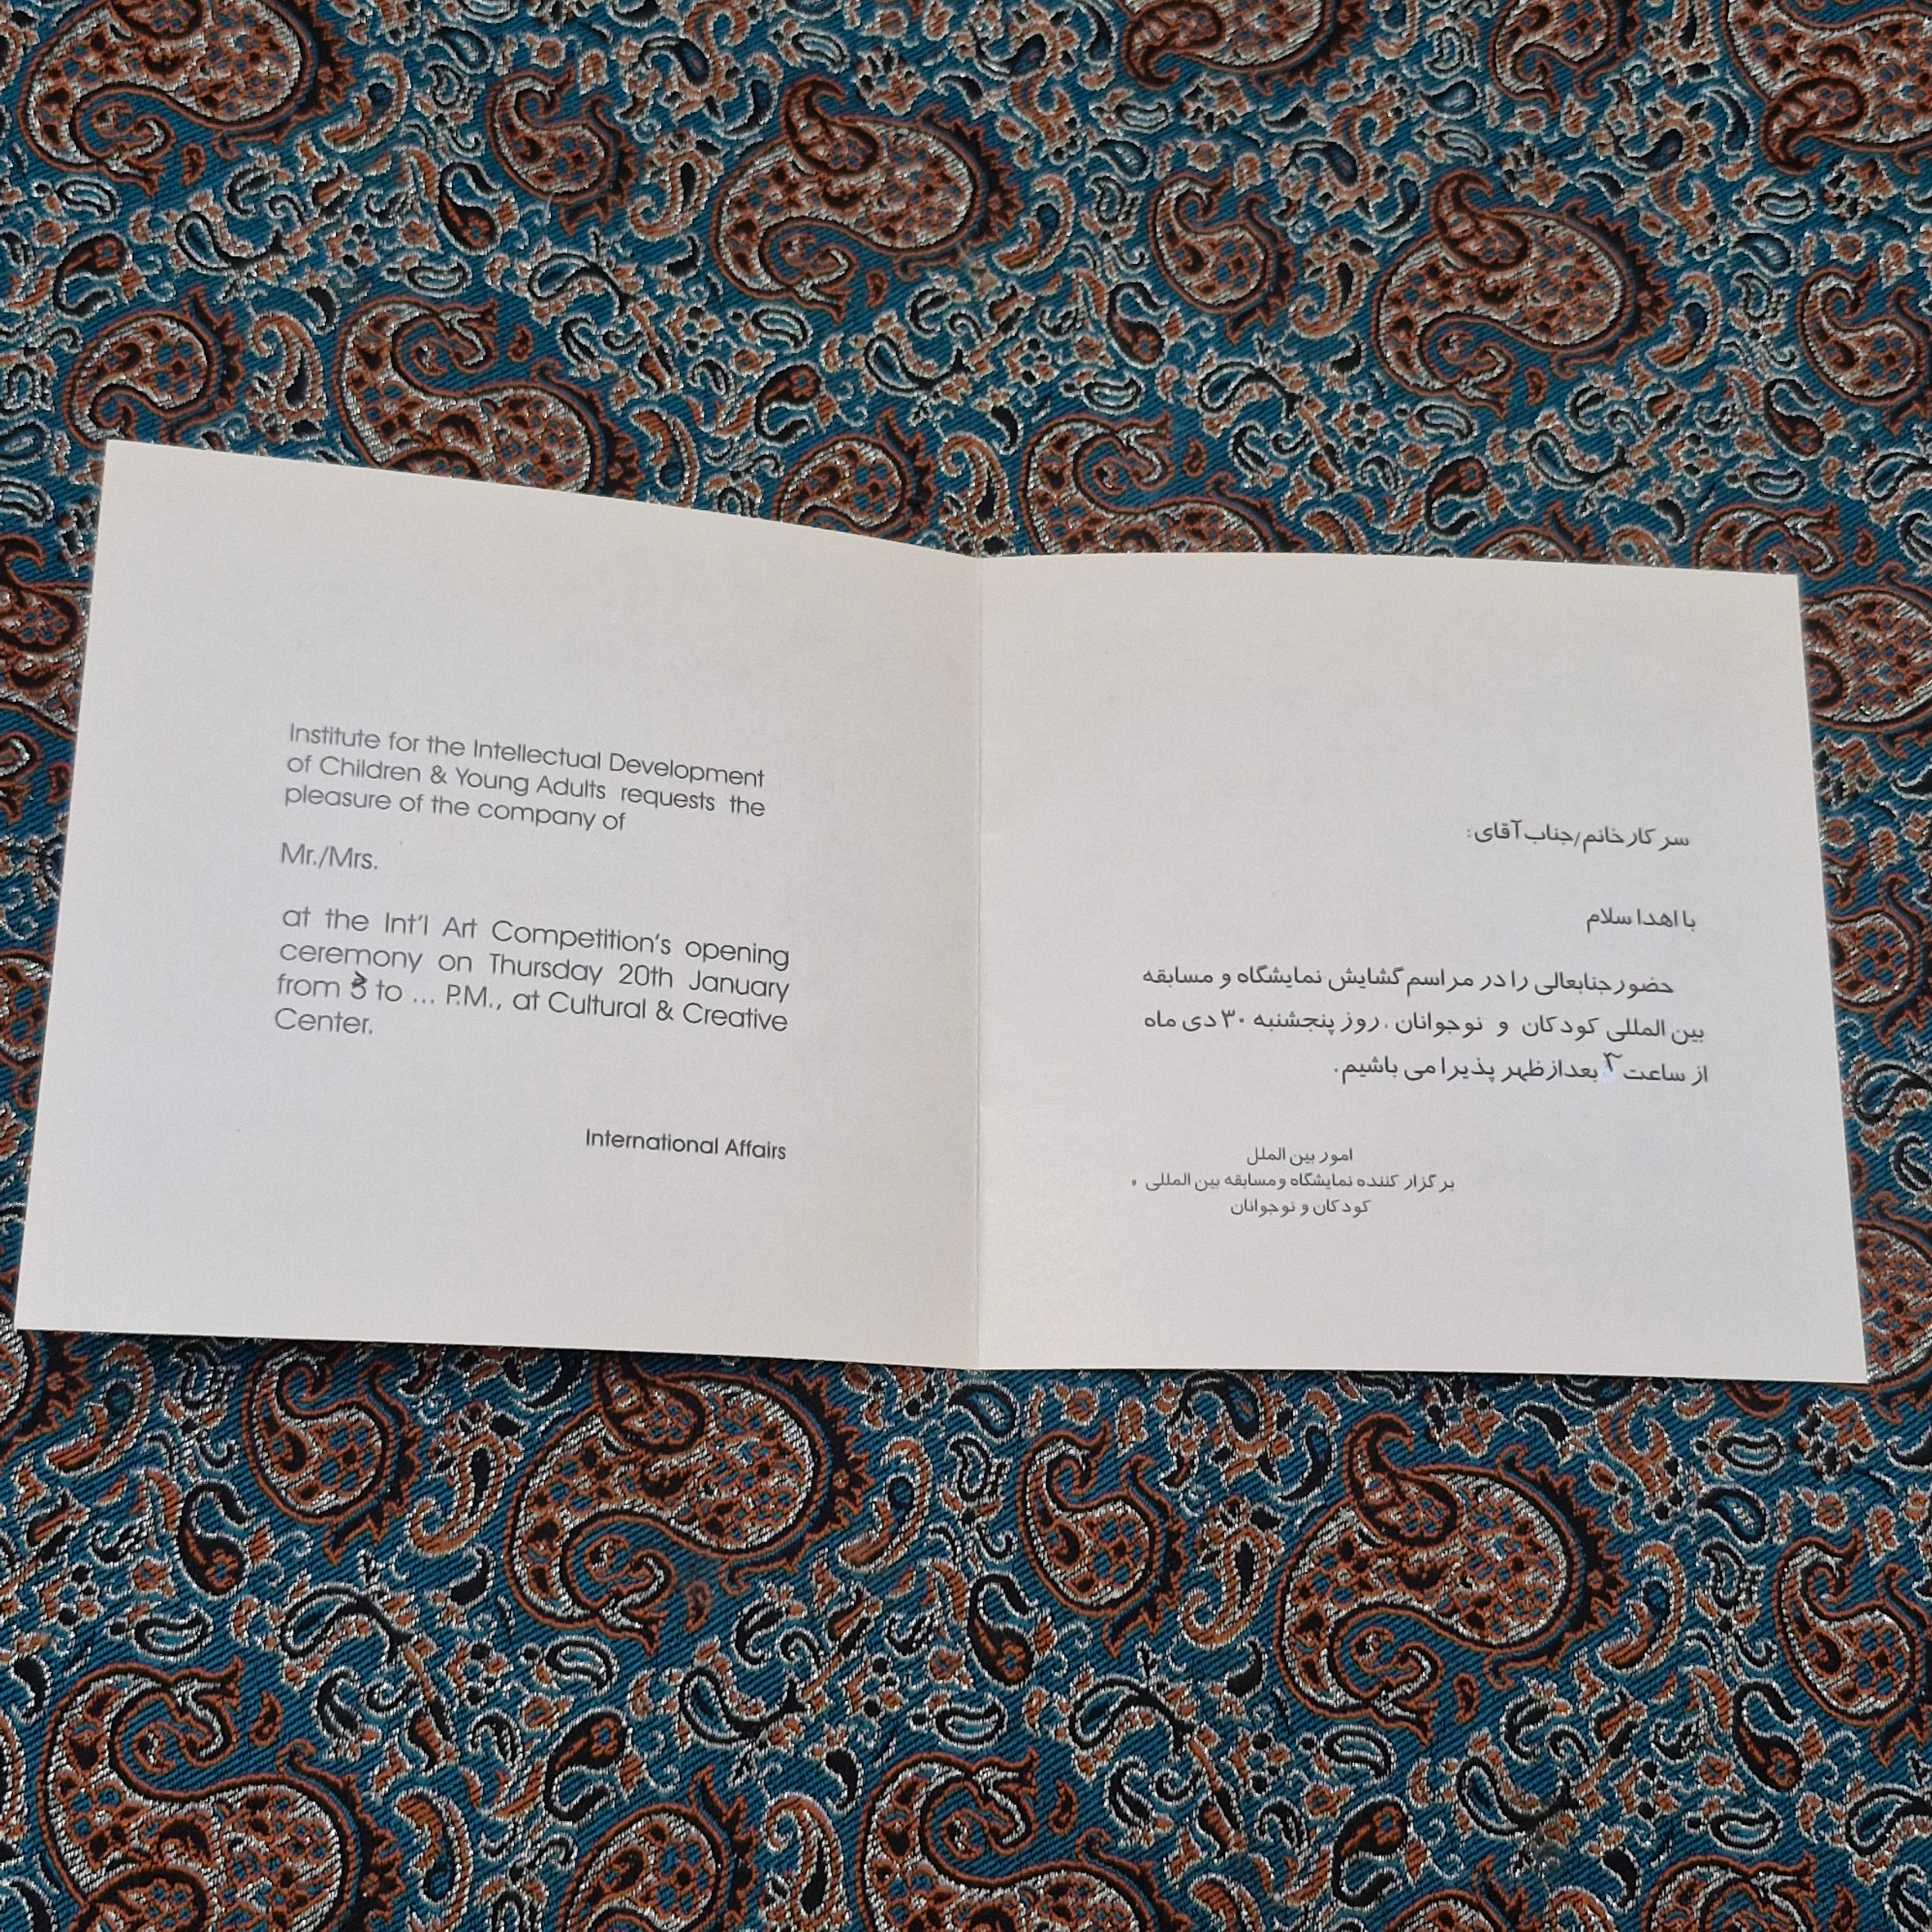 Institute for the Intellectual Development
of Children & Young Adults requests the
pleasure of the company of
Mr./Mrs.
at the Int'l Art Competition's opening
ceremony on Thursday 20th January
from to ... P.M., at Cultural & Creative
Center.
International Affairs
سرکار خانم/جناب آقای:
با اهدا سلام
حضور جنابعالی را در مراسم گشایش نمایشگاه و مسابقه
بین المللی کودکان و نوجوانان . روز پنجشنبه ۳۰ دی ماه
از ساعت بعدازظهر پذیرا می باشیم.
امور بین الملل
برگزار کننده نمایشگاه و مسابقه بین المللی
کودکان و نوجوانان